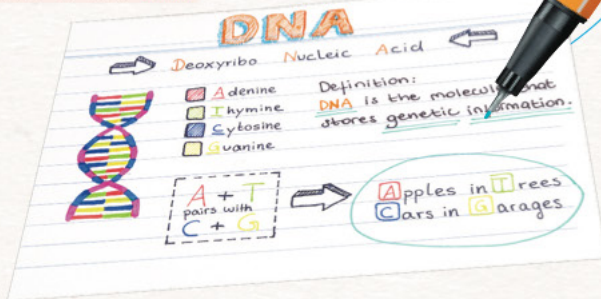 DNA
Deoxyribo Nucleic Acid
Adenine
Thymine
Cytosine
Guanine
Definition:
DNA is the molecule that
stores genetic information.
A + T
pairs with
C + G
Apples in Trees
Cars in Garages